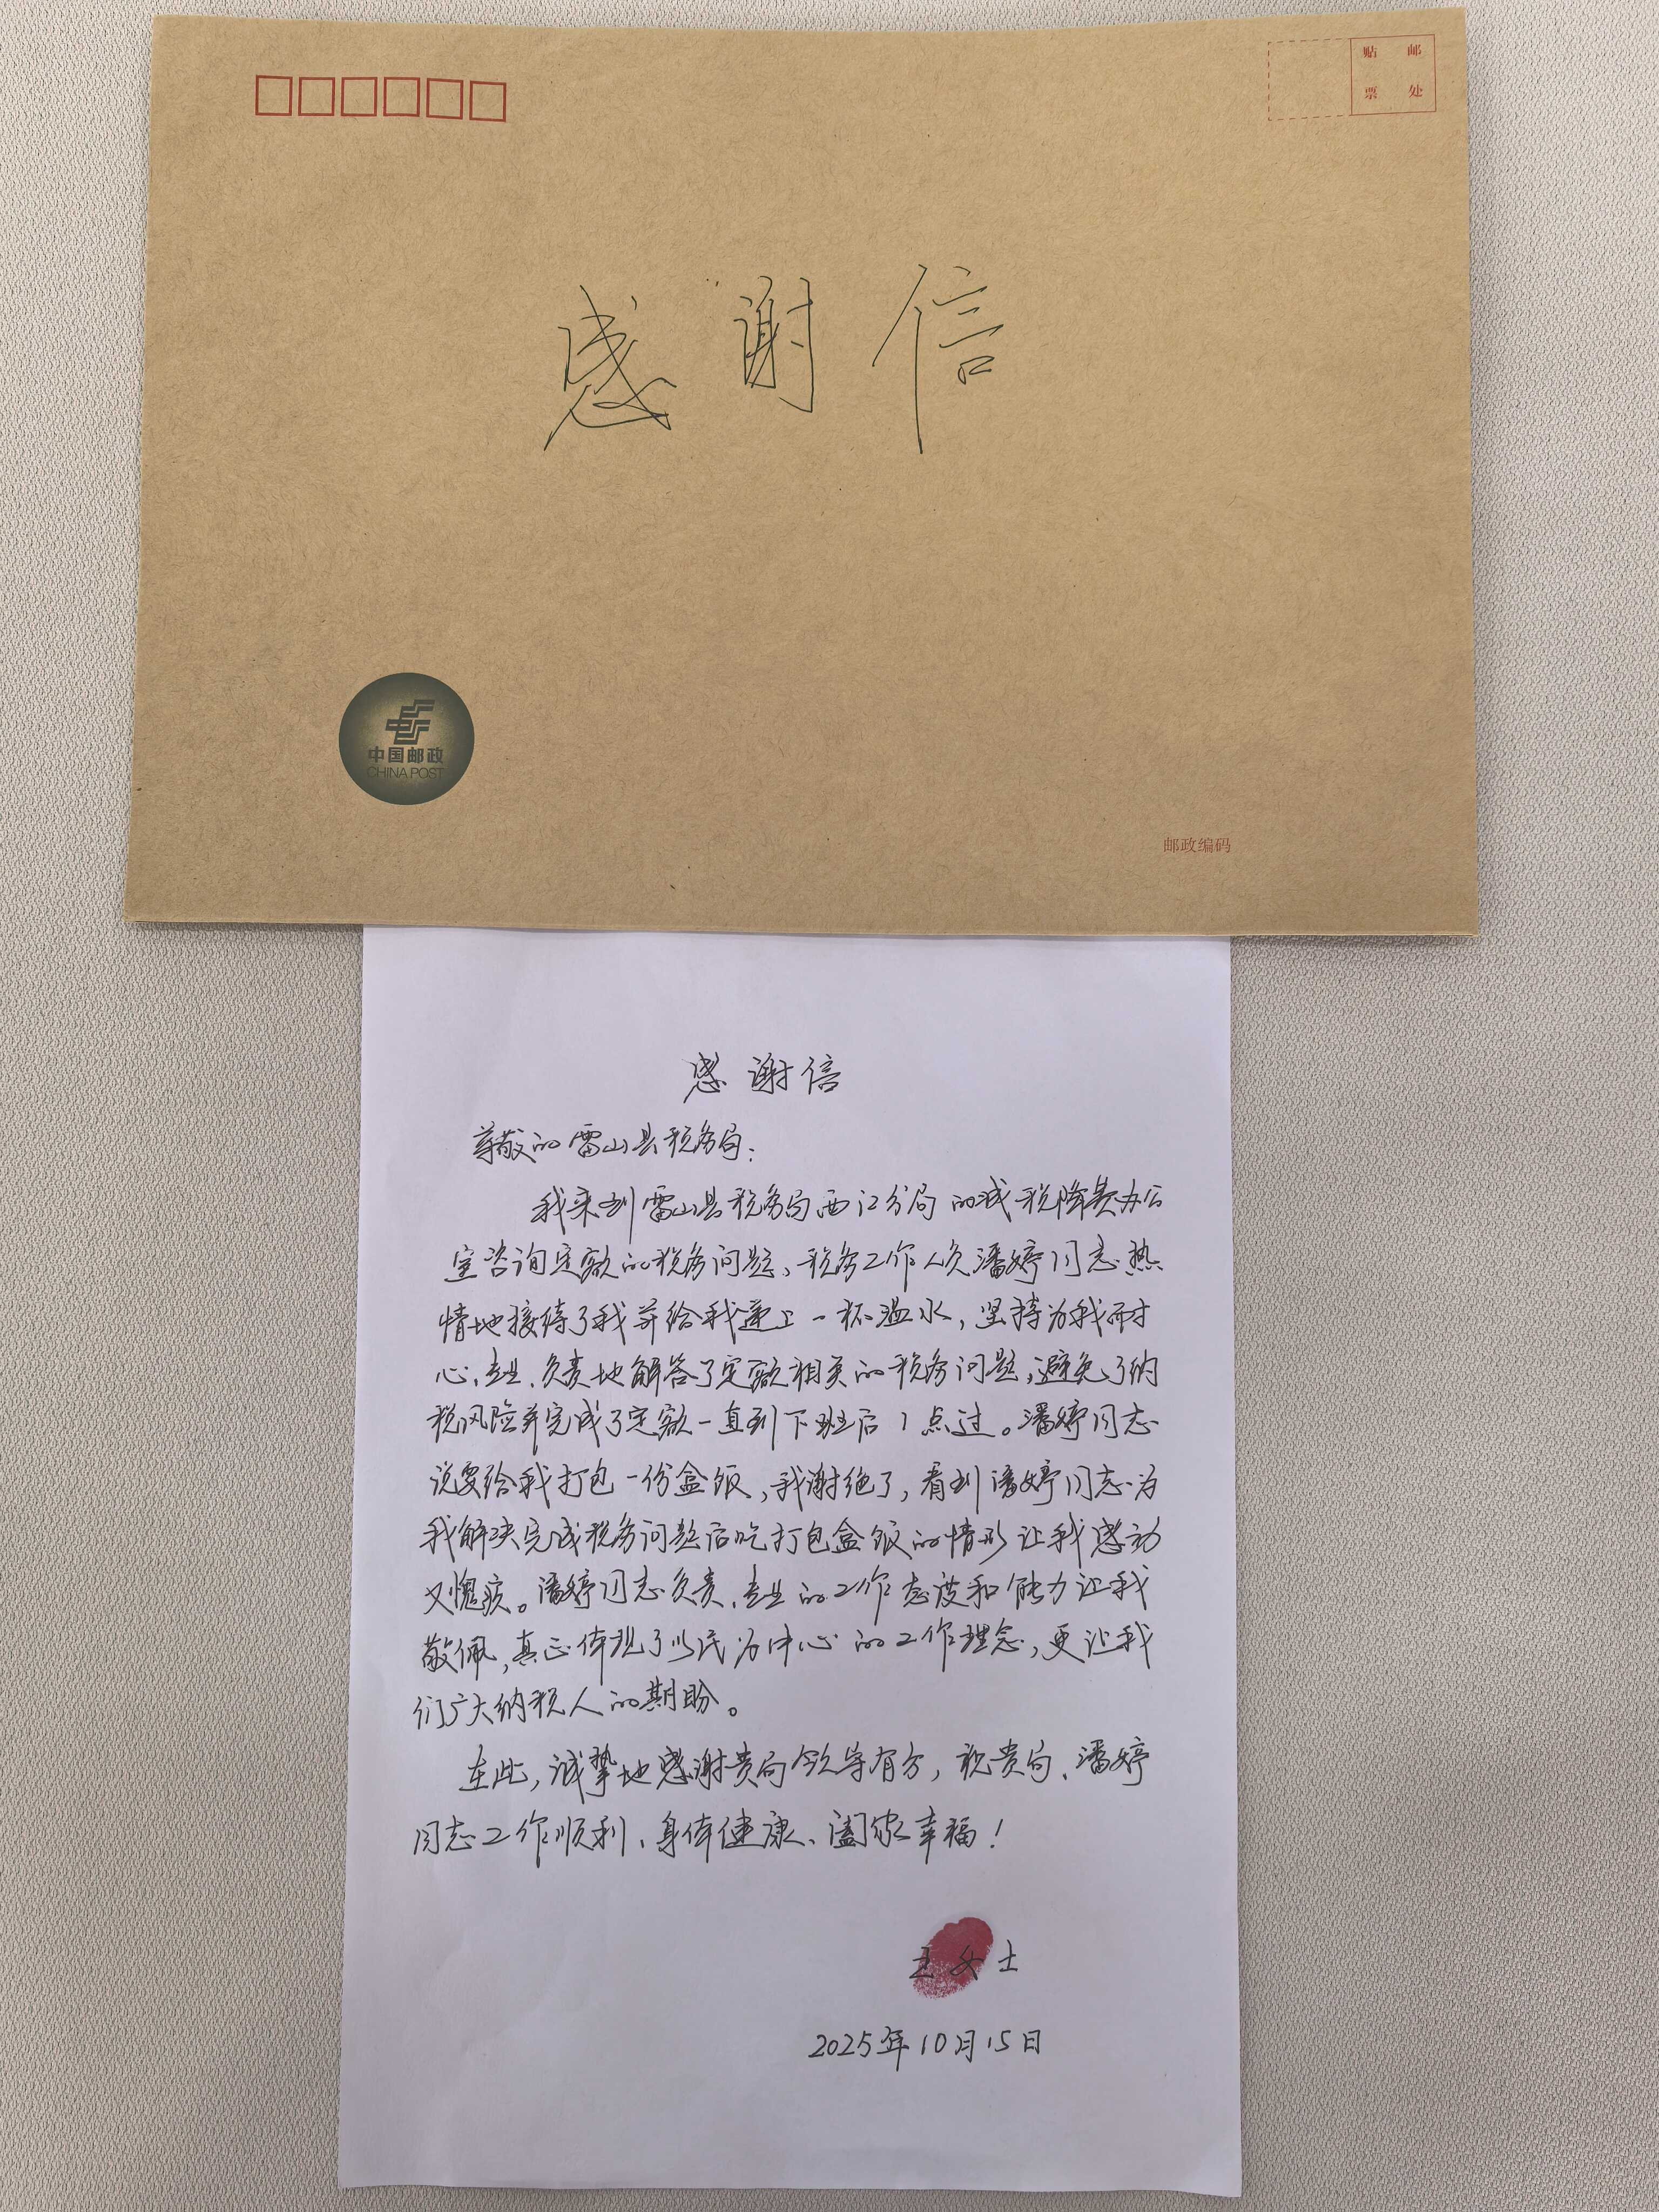 贴 邮
票 处
感谢信
中国邮政
CHINA POST
邮政编码
感谢信
尊敬的雷山县税务局：
我来到雷山县税务局西江分局的减税降费办公
室咨询定额的税务问题、税务工作人员潘婷同志热
情地接待了我并给我递上一杯温水，坚持为我耐
心、专业、负责地解答了定额相关的税务问题，避免了纳
税风险并完成了定额一直到下班后1点过。潘婷同志
说要给我打包一份盒饭，我谢绝了，看到潘婷同志为
我解决完成税务问题后吃打包盒饭的情形让我感动
又愧疚。潘婷同志负责、专业的工作态度和能力让我
敬佩，真正体现了以民为中心的工作理念，更让我
们广大纳税人的期盼。
在此，诚挚地感谢贵局领导有方，祝贵局、潘婷
同志工作顺利、身体健康、阖家幸福！
王女士
2025年10月15日